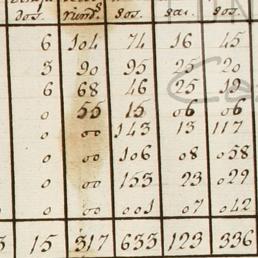 dos. rums. sos. sac. sos.
6 104 74 16 45
3 90 95 25 20
6 68 46 25 19
0 55 15 06 06
0 00 143 13 117
0 00 106 08 058
0 00 153 23 029
0 00 001 07 042
3 15 317 633 123 336